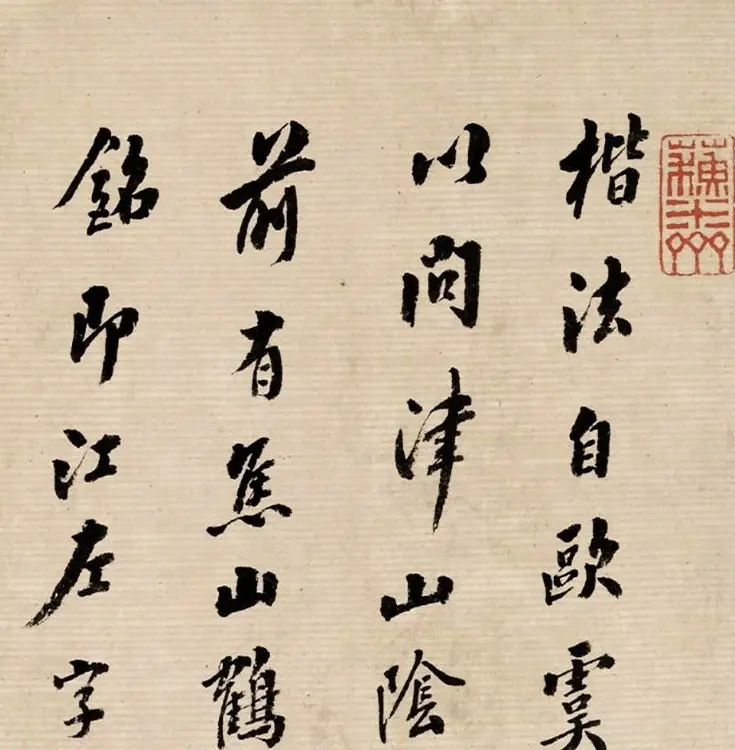 楷法自歐虞
以問津山陰
前有焦山鶴
銘即江左字